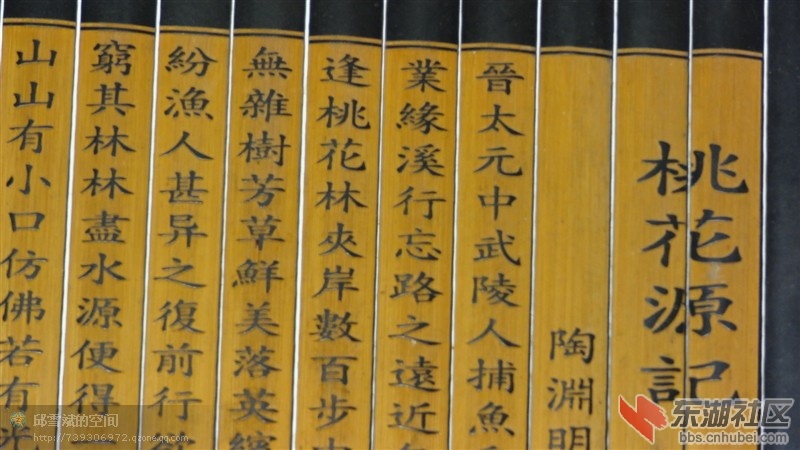 桃花源記
陶淵明
晉太元中武陵人捕魚
業緣溪行忘路之遠近
逢桃花林夾岸數百步
無雜樹芳草鮮美落英繽
紛漁人甚异之復前行
窮其林林盡水源便得
山山有小口仿佛若有光
邱雪斌的空间
http://739306972.qzone.qq.com
东湖社区
bbs.cnhubei.com